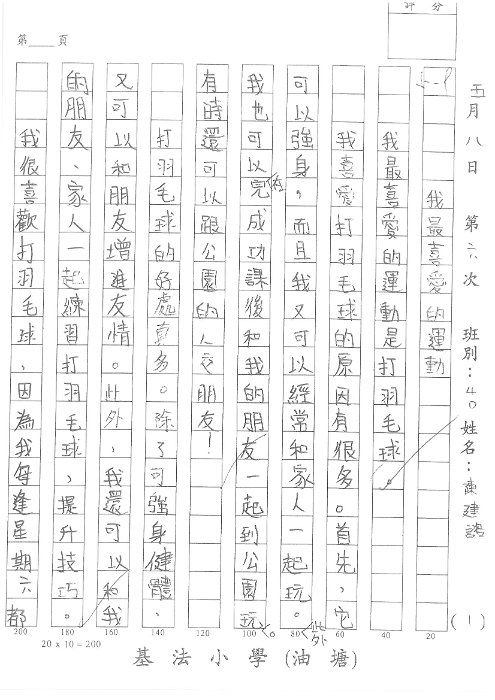 評分
五月八日 第六次 班別：4D 姓名： (1)
我最喜愛的運動
我最喜愛的運動是打羽毛球。
我喜愛打羽毛球的原因有很多。首先，它
可以強身。而且我又可以經常和家人一起玩。此外
我也可以在完成功課後和我的朋友一起到公園玩。
有時還可以跟公園的人交朋友！
打羽毛球的好處真多。除了可強身健體，
又可以和朋友增進友情。此外，我還可以和我
的朋友、家人一起練習打羽毛球，提升技巧。
我很喜歡打羽毛球，因為我每逢星期六都
第 頁
200 180 160 140 120 100 80 60 40 20
20 x 10 = 200
基法小學(油塘)